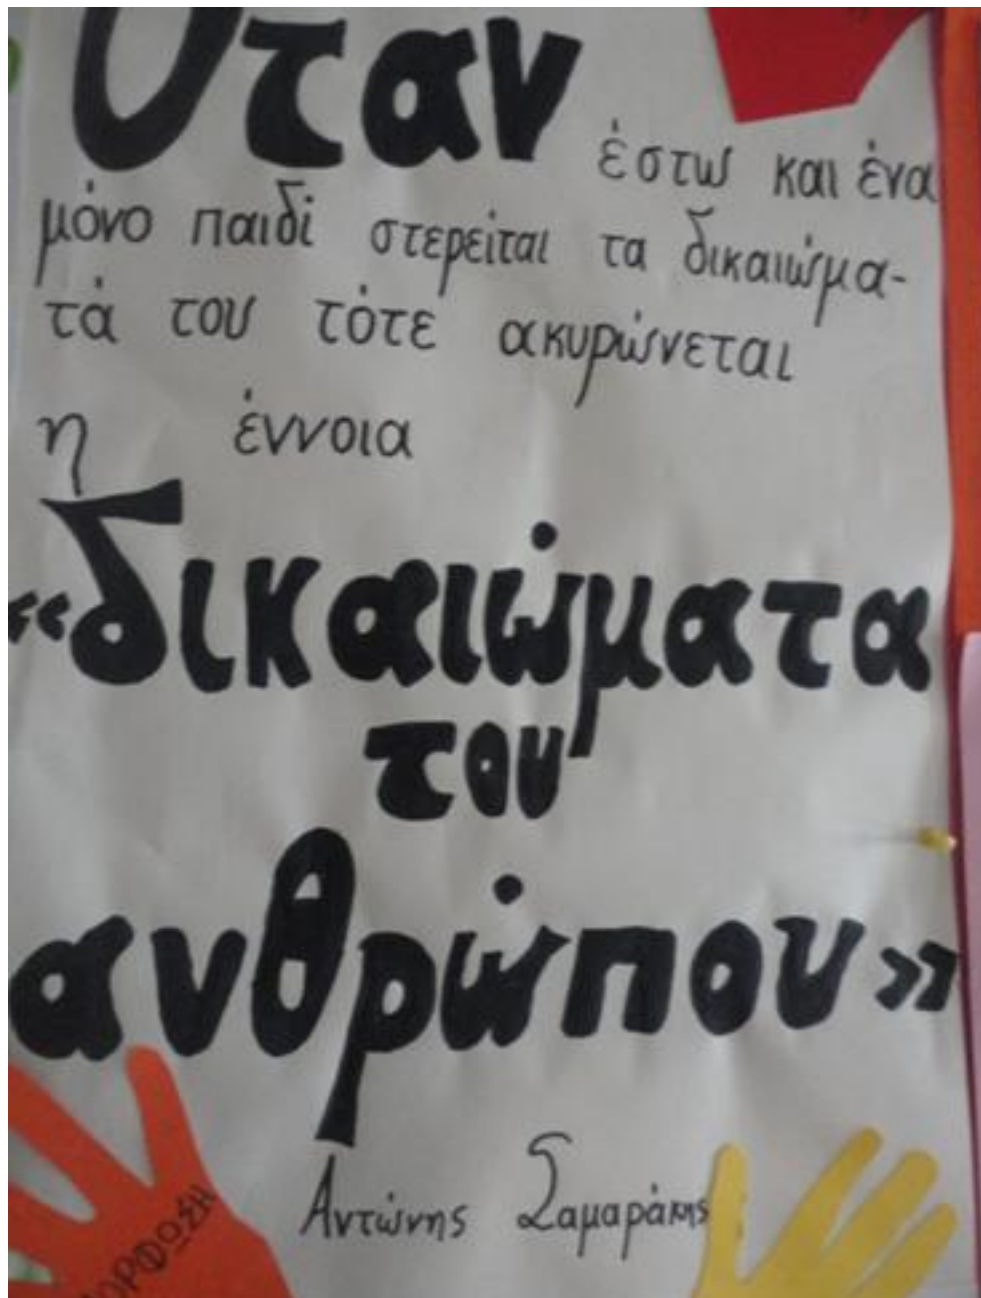 Όταν έστω και ένα
μόνο παιδί στερείται τα δικαιώμα-
τά του τότε ακυρώνεται
η έννοια
«δικαιώματα
του
ανθρώπου»
Αντώνης Σαμαράκης
ΟΡΦΩΣΗ